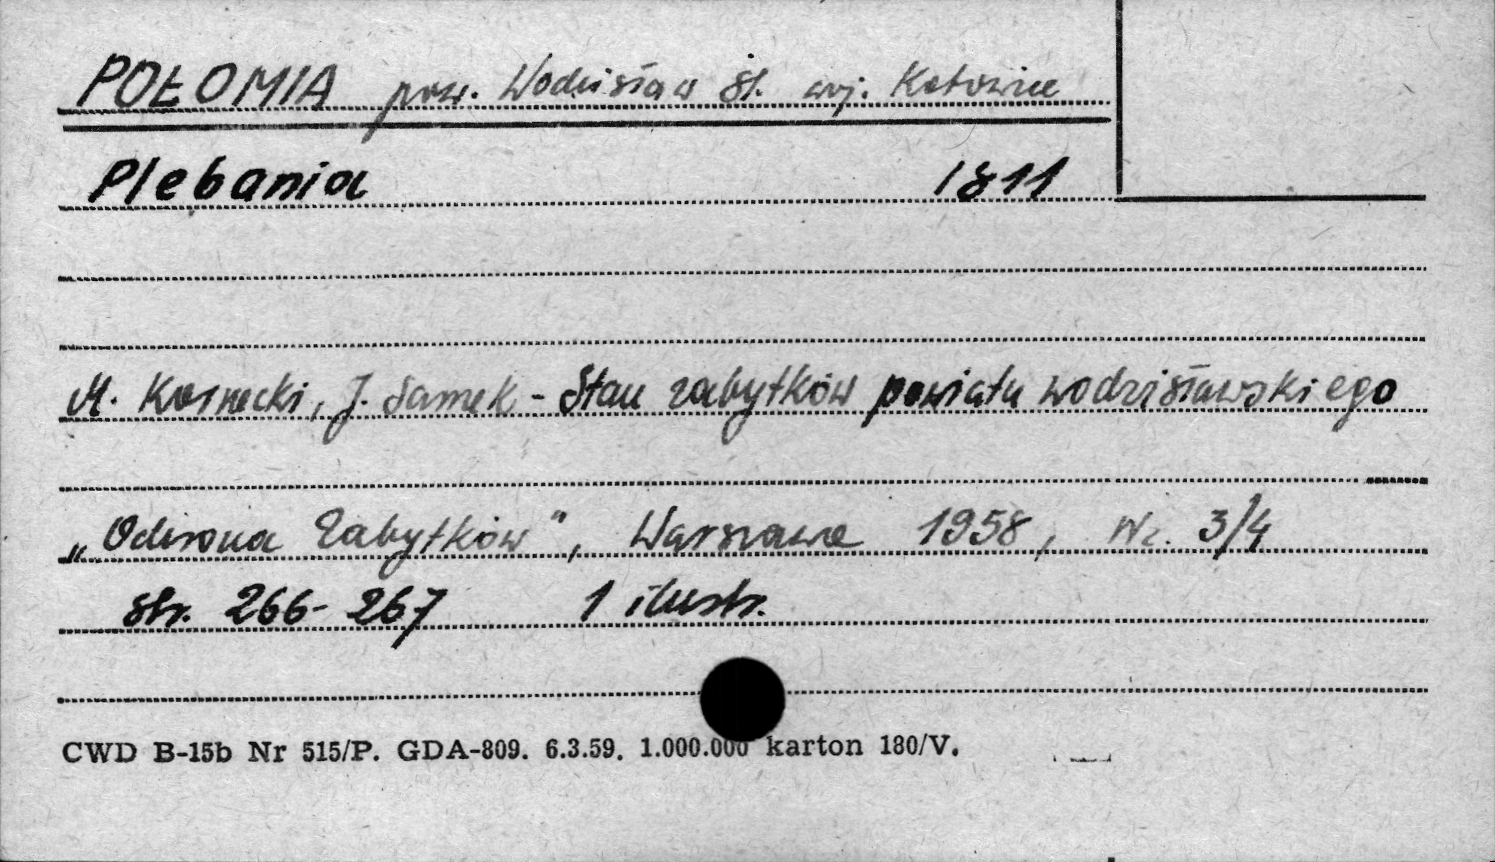 POŁOMIA pow. Wodzisław Śl. woj. Katowice
Plebania 1811
M. Kornecki, J. Samek - Stan zabytków powiatu wodzisławskiego
„Ochrona Zabytków”, Warszawa 1958, Nr. 3/4
str. 266-267 1 ilustr.
CWD B-15b Nr 515/P. GDA-809. 6.3.59. 1.000.000 karton 180/V.